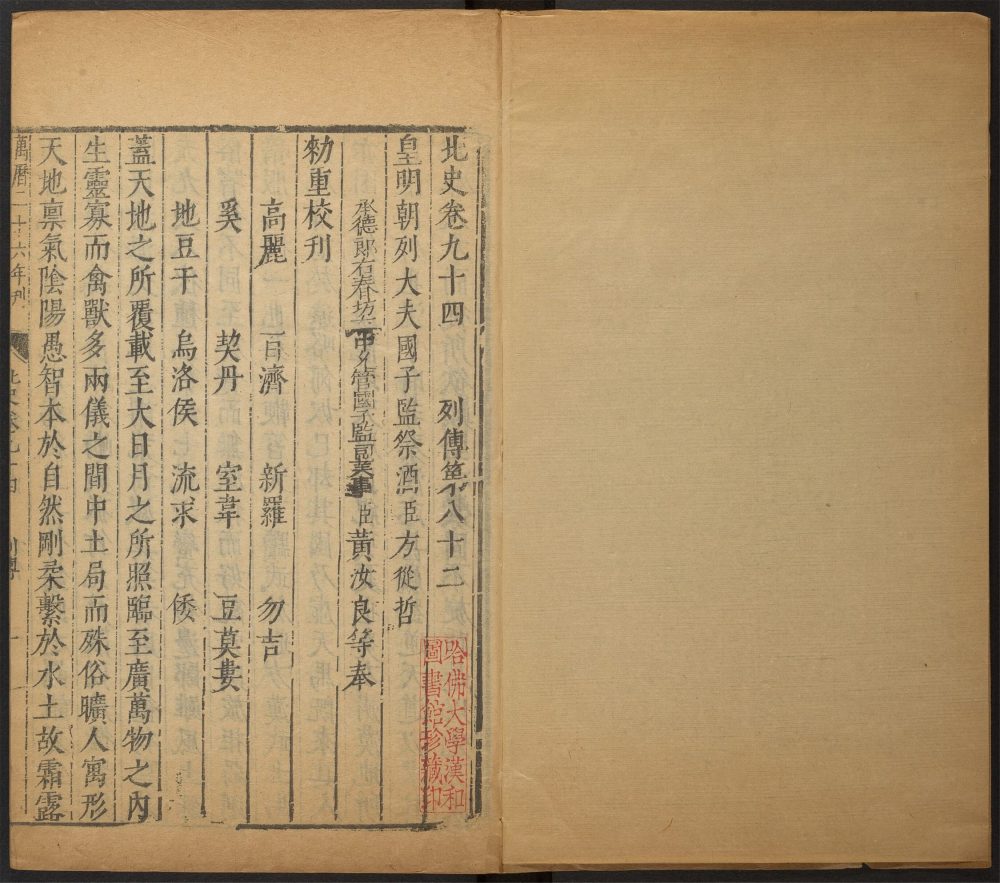 北史卷九十四 列傳第八十二
皇明朝列大夫國子監祭酒臣方從哲
承德郎右春坊右中允管國子監司業事臣黃汝良等奉
勑重校刊
高麗 百濟 新羅 勿吉
奚 契丹 室韋 豆莫婁
地豆于 烏洛侯 流求 倭
蓋天地之所覆載至大日月之所照臨至廣萬物之內
生靈寡而禽獸多兩儀之間中土局而殊俗曠人寓形
天地稟氣陰陽愚智本於自然剛柔繫於水土故霜露
萬曆二十六年刊 北史卷九十四 列傳 一
哈佛大學漢和
圖書館珍藏印